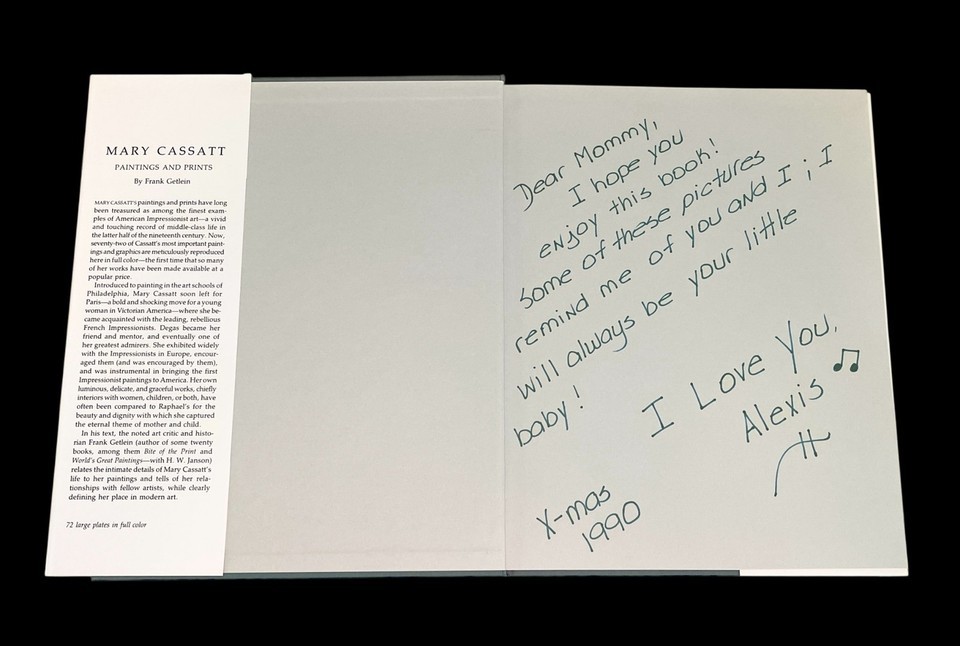 MARY CASSATT
PAINTINGS AND PRINTS
By Frank Getlein
MARY CASSATT'S paintings and prints have long
been treasured as among the finest exam-
ples of American Impressionist art—a vivid
and touching record of middle-class life in
the latter half of the nineteenth century. Now,
seventy-two of Cassatt's most important paint-
ings and graphics are meticulously reproduced
here in full color—the first time that so many
of her works have been made available at a
popular price.
Introduced to painting in the art schools of
Philadelphia, Mary Cassatt soon left for
Paris—a bold and shocking move for a young
woman in Victorian America—where she be-
came acquainted with the leading, rebellious
French Impressionists. Degas became her
friend and mentor, and eventually one of
her greatest admirers. She exhibited widely
with the Impressionists in Europe, encour-
aged them (and was encouraged by them),
and was instrumental in bringing the first
Impressionist paintings to America. Her own
luminous, delicate, and graceful works, chiefly
interiors with women, children, or both, have
often been compared to Raphael's for the
beauty and dignity with which she captured
the eternal theme of mother and child.
In his text, the noted art critic and histo-
rian Frank Getlein (author of some twenty
books, among them Bite of the Print and
World's Great Paintings—with H. W. Janson)
relates the intimate details of Mary Cassatt's
life to her paintings and tells of her rela-
tionships with fellow artists, while clearly
defining her place in modern art.
72 large plates in full color
Dear Mommy,
I hope you
enjoy this book!
Some of these pictures
remind me of you and I ; I
will always be your little
baby!
I Love You,
Alexis
X-mas
1990